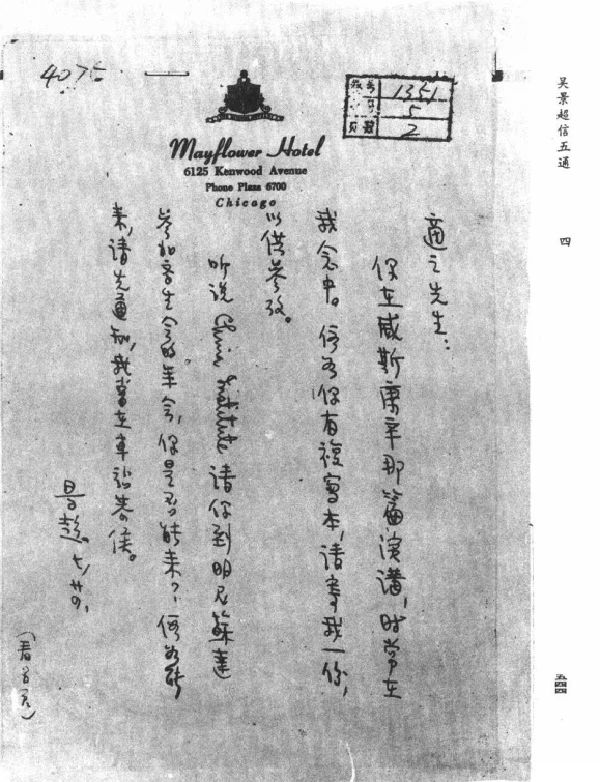 4075
1351
5
頁數 2
Mayflower Hotel
6125 Kenwood Avenue
Phone Plaza 6700
Chicago
適之先生：
你在威斯康辛那篇演講，時常在
我念中。倘若你有複寫本，請寄我一份，
以供參攷。
听说 China Institute 請你到明尼蘇達
參加學生會的年會，你是否能来？倘若能
来，請先通知，我當在車站恭候。
景超。七，廿，
吳景超信五通
四
五四四